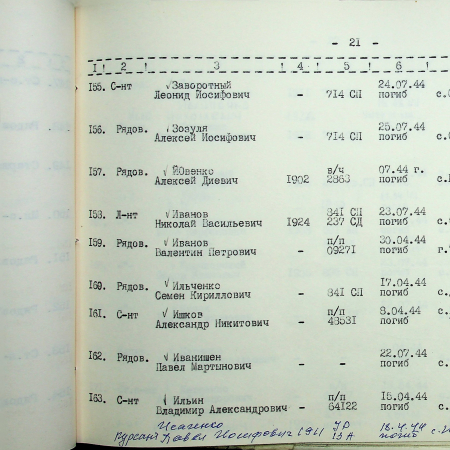 - 21 -
1 2 3 4 5 6
155. С-нт √ Заворотный 24.07.44
Леонид Иосифович - 714 СП погиб с.
156. Рядов. √ Зозуля 25.07.44
Алексей Иосифович - 714 СП погиб с.
157. Рядов. √ Йовенко в/ч 07.44 г.
Алексей Диевич 1902 2863 погиб с.
158. Л-нт √ Иванов 841 СП 23.07.44
Николай Васильевич 1924 237 СД погиб с.
159. Рядов. √ Иванов п/п 30.04.44
Валентин Петрович - 09271 погиб г.
160. Рядов. √ Ильченко 17.04.44
Семен Кириллович - 841 СП погиб с.
161. С-нт √ Ишков п/п 8.04.44
Александр Никитович - 48531 погиб с.
162. Рядов. √ Иванишен 22.07.44
Павел Мартынович - - погиб с.
163. С-нт √ Ильин п/п 15.04.44
Владимир Александрович - 64122 погиб с.
Исаченко 18.4.44
Курсант Павел Иосифович 1911 погиб с.